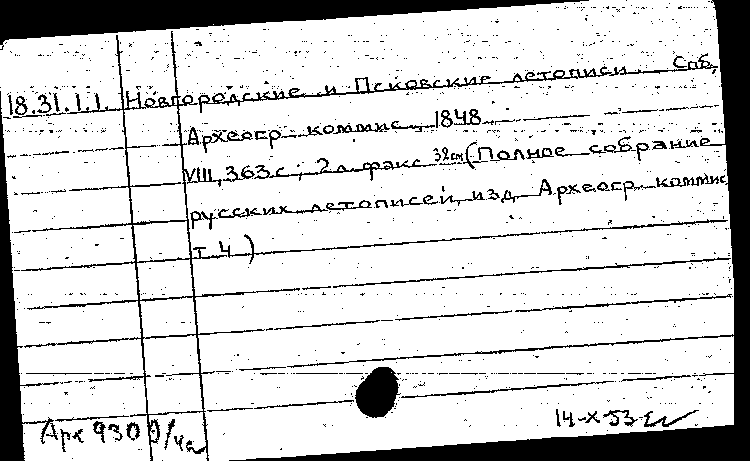 18.31.1.1. Новгородские и Псковские летописи. Спб,
Археогр. коммис., 1848.
VIII, 363 с.; 2 л. факс 32см (Полное собрание
русских летописей, изд. Археогр. коммис
т. 4)
Арх 930
14-X-53